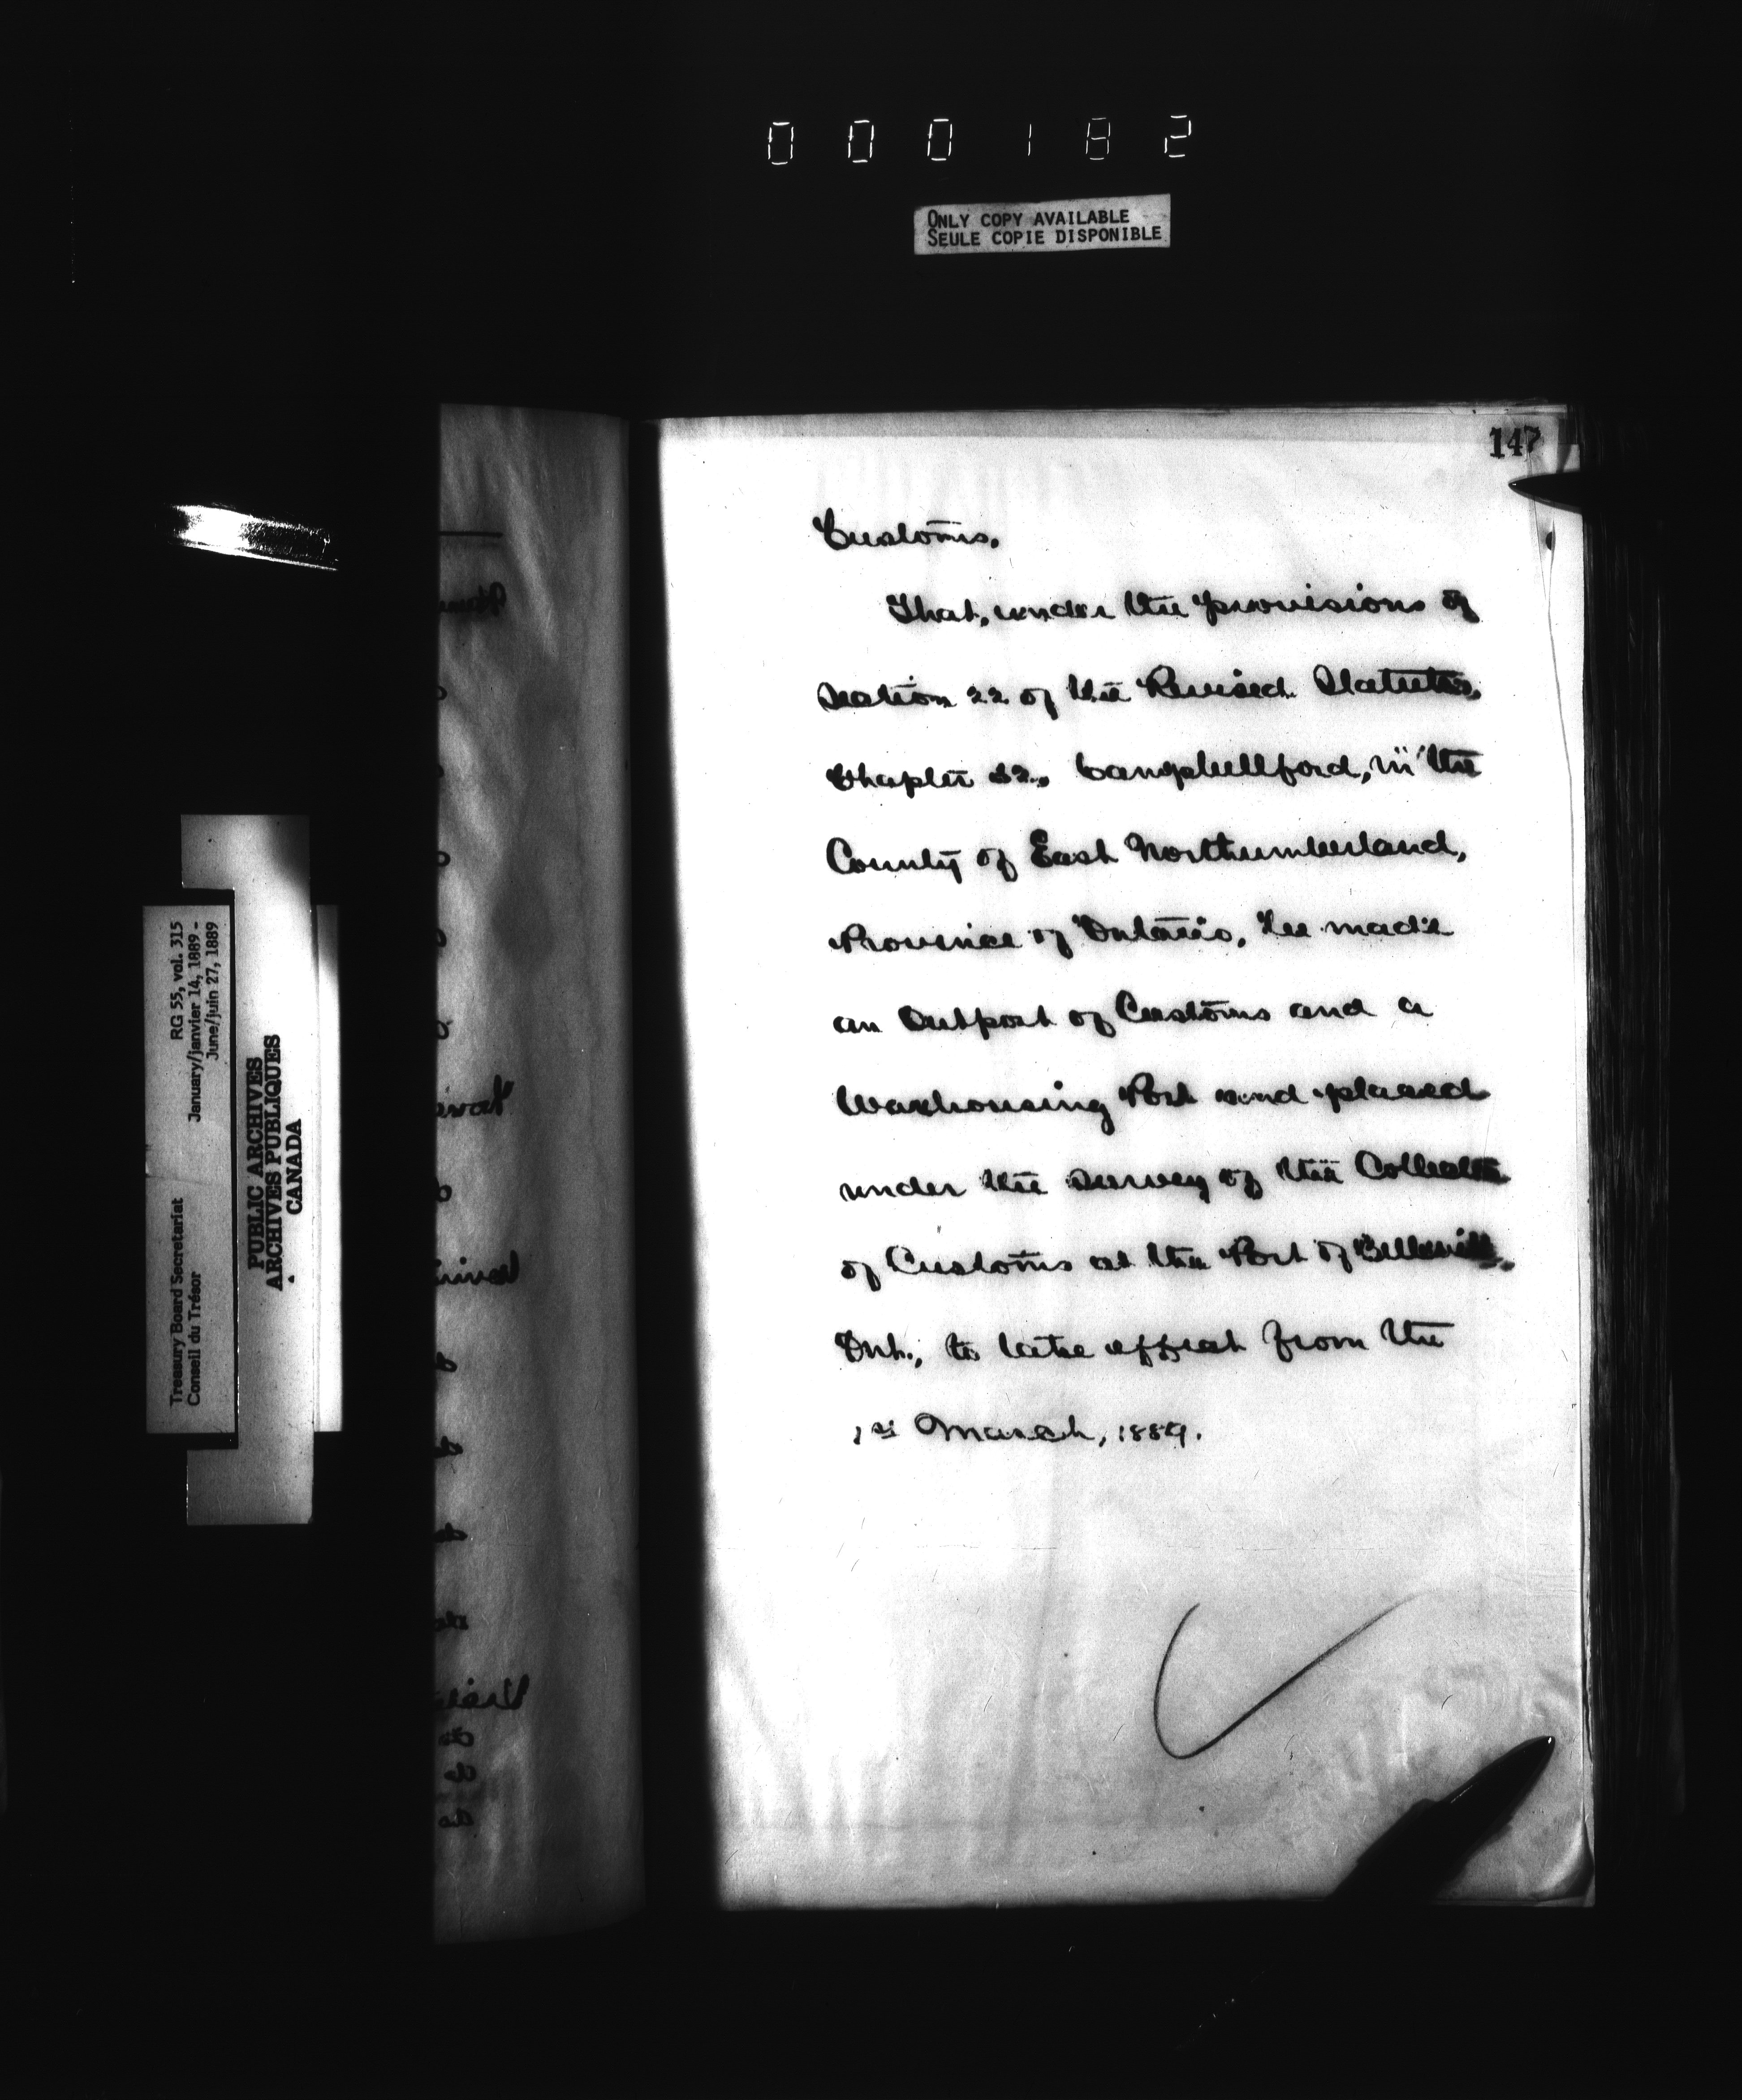 000182
ONLY COPY AVAILABLE
SEULE COPIE DISPONIBLE
147
Customs.
That, under the provisions of
Section 22 of the Revised Statutes,
Chapter 32, Campbellford, in the
County of East Northumberland,
Province of Ontario, be made
an Outport of Customs and a
Warehousing Port and placed
under the survey of the Collector
of Customs at the Port of Belleville,
Ont., to take effect from the
1st March, 1889.
Treasury Board Secretariat
Conseil du Trésor
RG 55, vol. 315
January/janvier 14, 1889 -
June/juin 27, 1889
PUBLIC ARCHIVES
ARCHIVES PUBLIQUES
CANADA